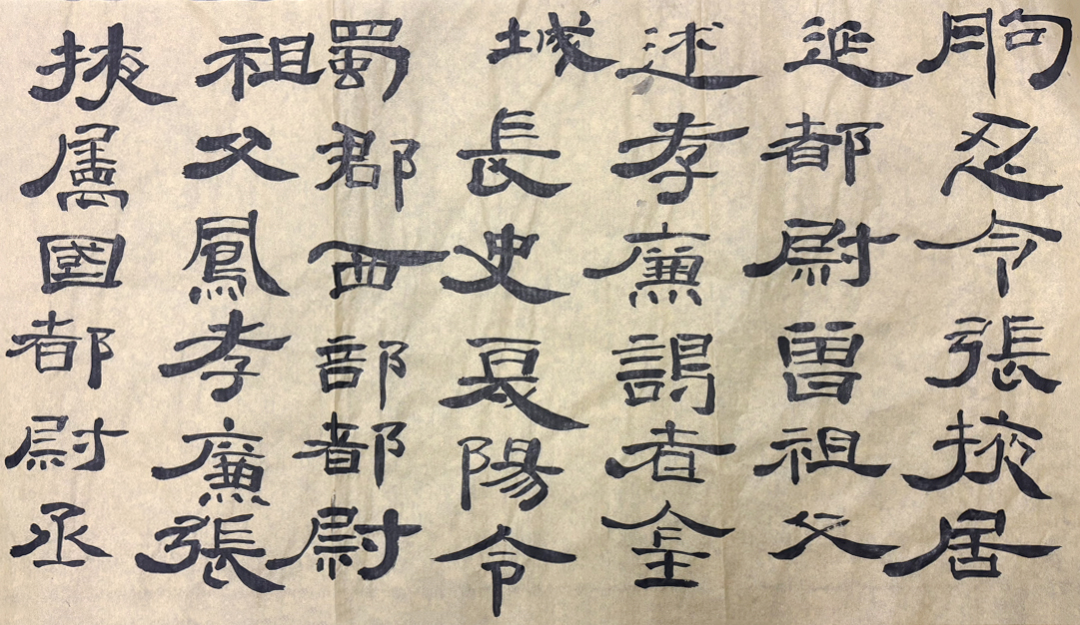 朐忍令張掖居
延都尉曾祖父
述孝廉謁者金
城長史夏陽令
蜀郡西部都尉
祖父鳳孝廉張
掖屬國都尉丞